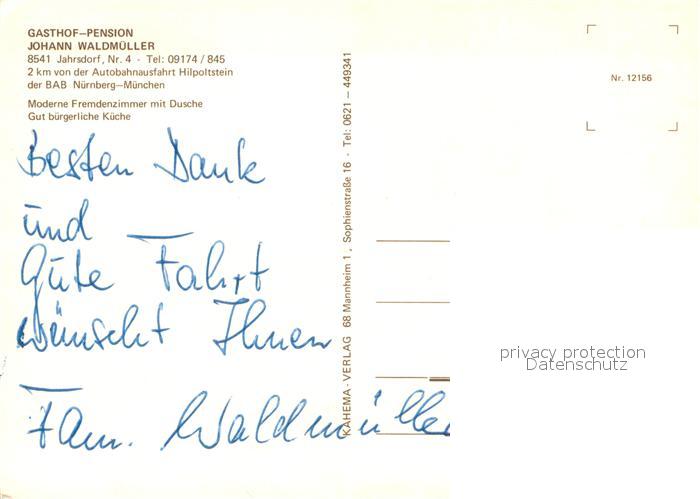 GASTHOF–PENSION
JOHANN WALDMÜLLER
8541 Jahrsdorf, Nr. 4 · Tel: 09174 / 845
2 km von der Autobahnausfahrt Hilpoltstein
der BAB Nürnberg–München
Moderne Fremdenzimmer mit Dusche
Gut bürgerliche Küche
Besten Dank
und
Gute Fahrt
wünscht Ihnen
Fam. Waldmüller
KAHEMA-VERLAG 68 Mannheim 1, Sophienstraße 16 · Tel: 0621 – 449341
Nr. 12156
privacy protection
Datenschutz